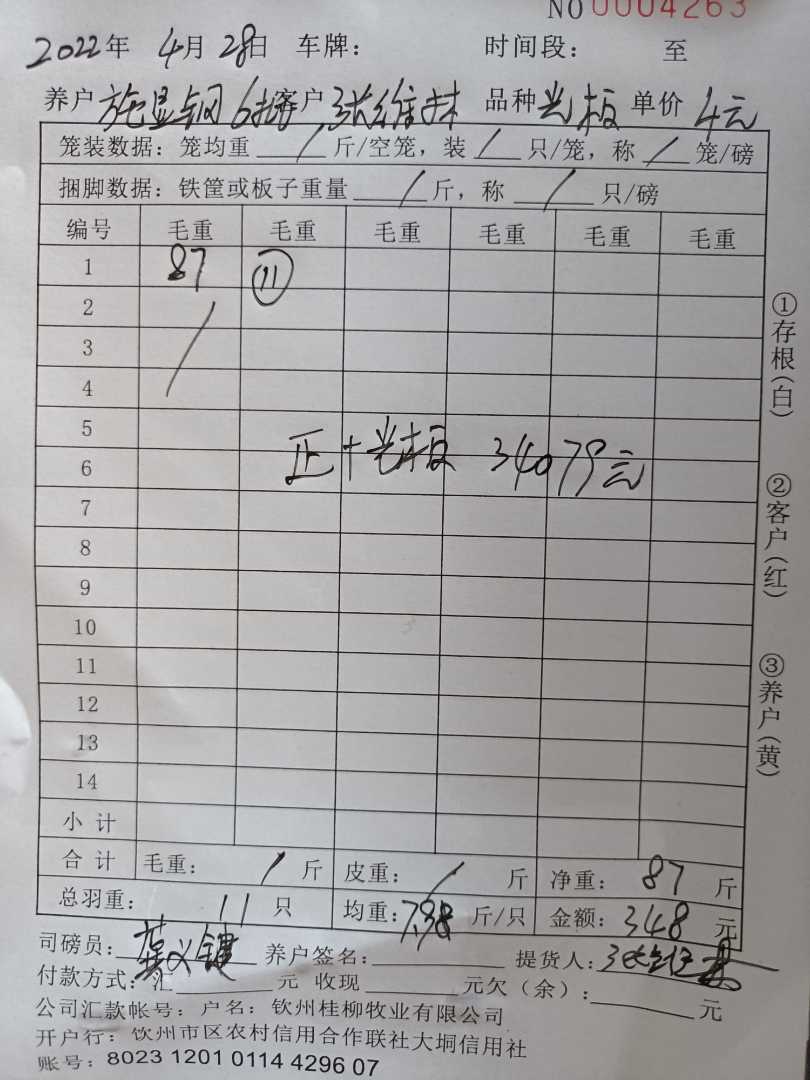 NO 0004263
2022年 4月 28日 车牌： 时间段： 至
养户 施显钢 6批 客户 张维林 品种 光板 单价 4元
笼装数据：笼均重 / 斤/空笼，装 / 只/笼，称 / 笼/磅
捆脚数据：铁筐或板子重量 / 斤，称 / 只/磅
编号 毛重 毛重 毛重 毛重 毛重 毛重
1 87 ⑪
2 /
3
4
5
正+光板 34079元
6
7
8
9
10
11
12
13
14
小计
合计 毛重： / 斤 皮重： / 斤 净重： 87 斤
总羽重： 11 只 均重：7.98 斤/只 金额：348 元
司磅员： 养户签名： 提货人：
付款方式：汇 元 收现 元欠（余）： 元
公司汇款帐号：户名：钦州桂柳牧业有限公司
开户行：钦州市区农村信用合作联社大垌信用社
账号：8023 1201 0114 4296 07
①存根（白）
②客户（红）
③养户（黄）